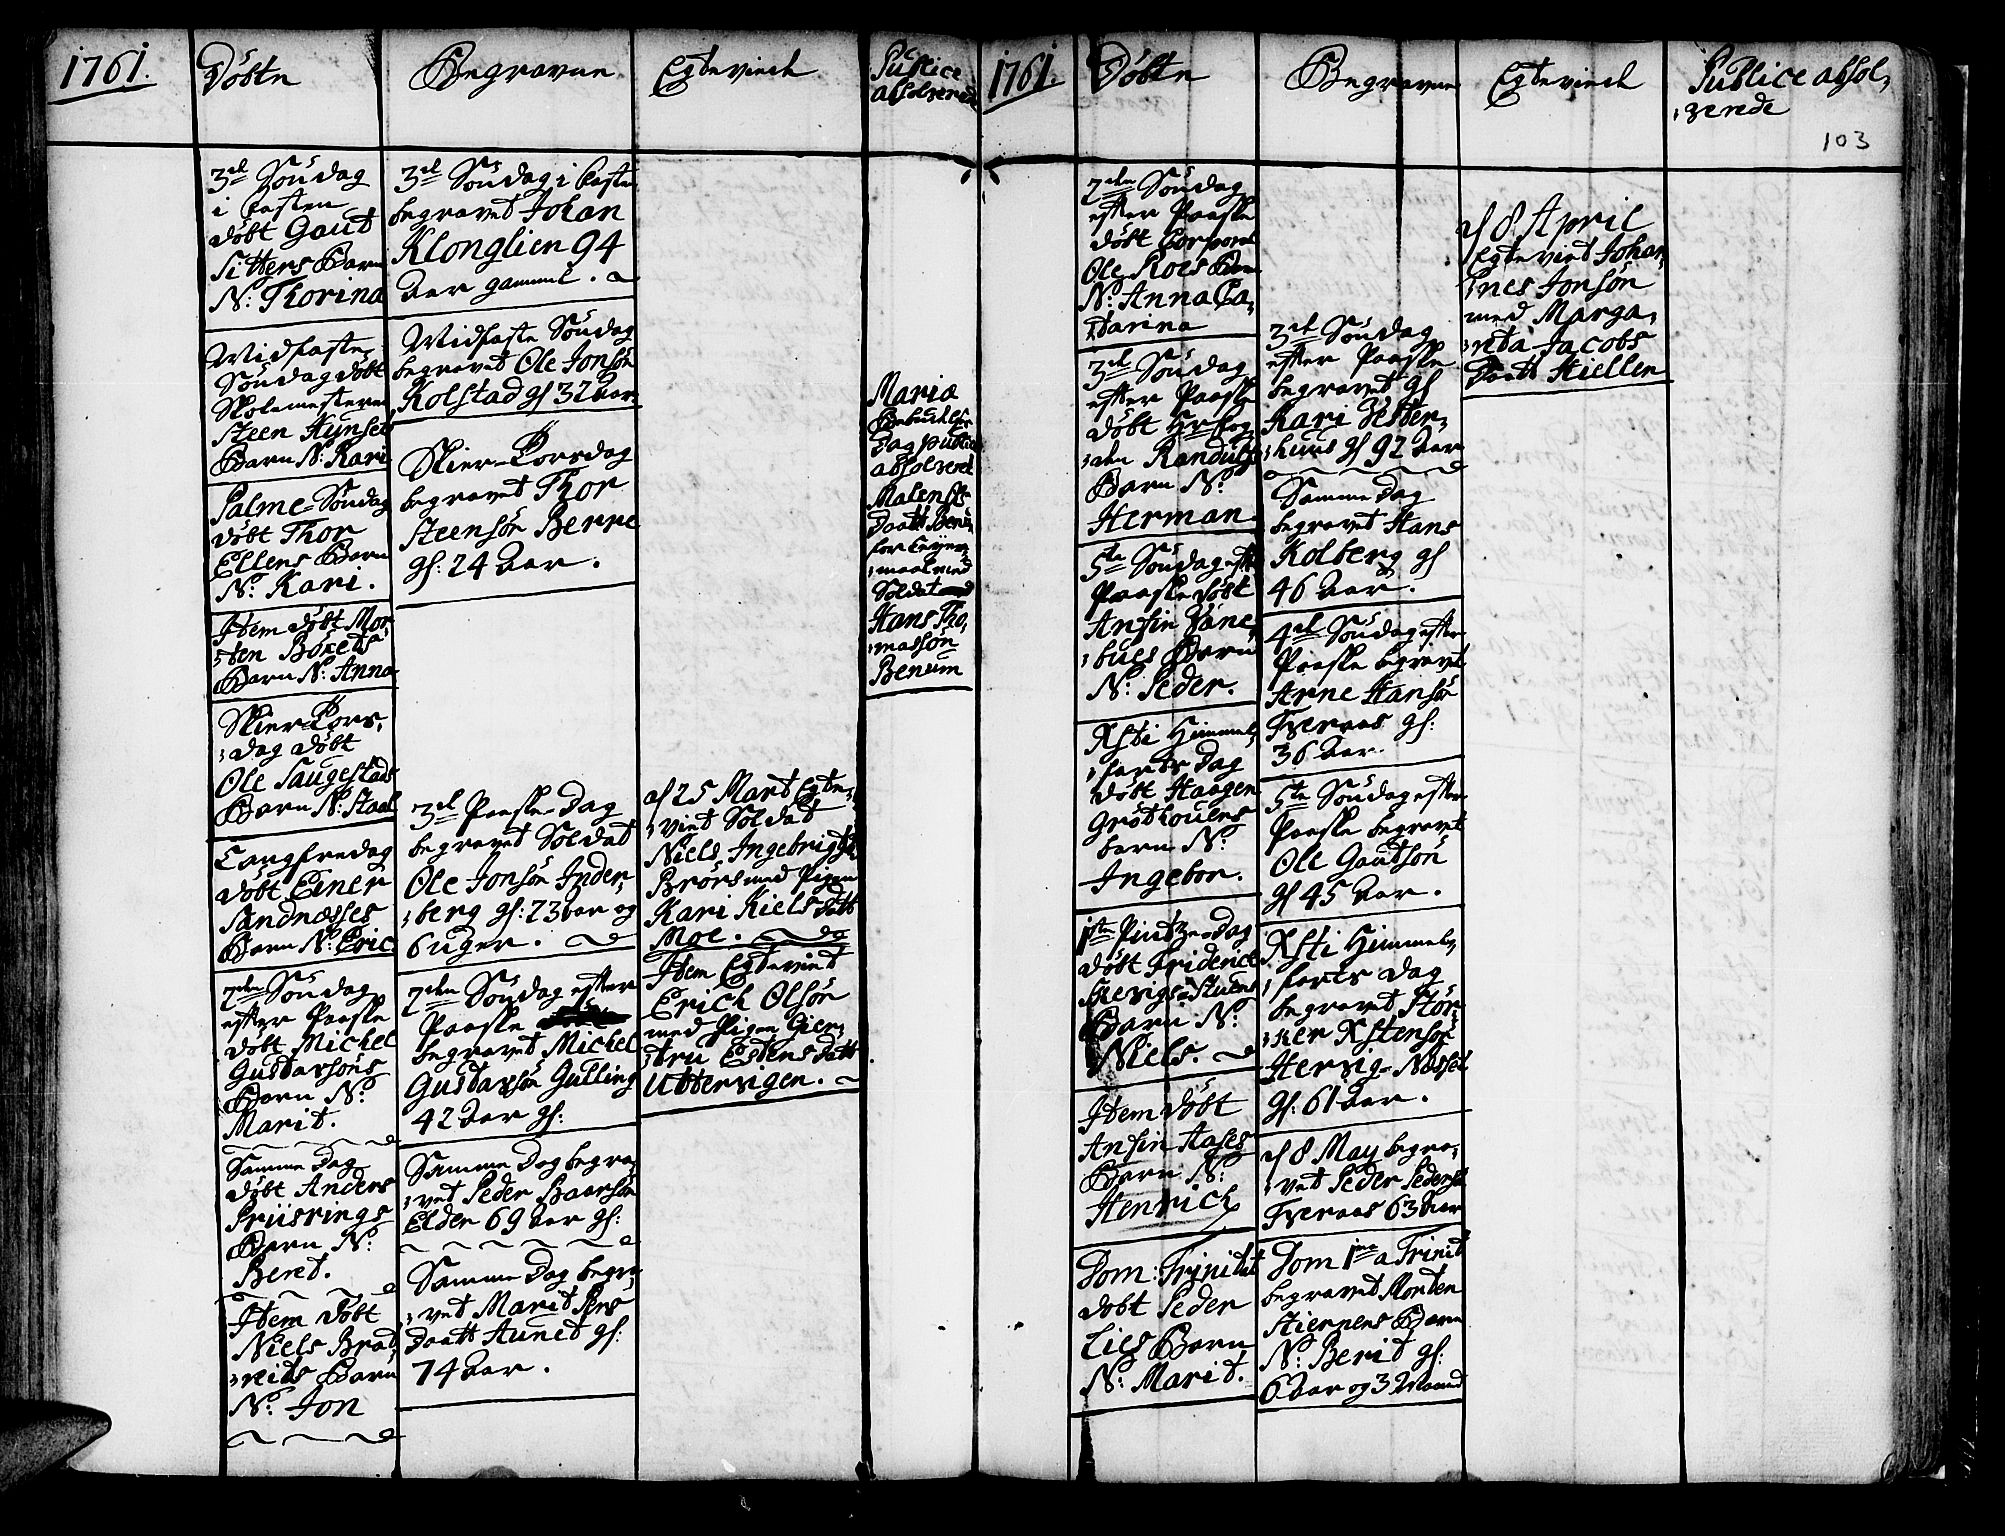 1761.
Døbte
Begravne
Egteviede
Publice
absolverede
3d Søndag
i Fasten
døbt Gaut
Sitters Barn
N: Thorina
Midfaste
Søndag døbt
Skolemesteren
Steen Hynset
Barn N: Kari
Palme-Søndag
døbt Thor
Ellens Barn
N: Kari.
Item døbt Mor
ten Børets
Barn N: Anna
Skier-Tors,
dag døbt
Ole Saugestads
Barn N: Staal
Langfredag
døbt Einer
Sandnæsses
Barn N: Eric
2den Søndag
efter Paaske
døbt Michel
Gustavsøns
Barn N:
Marit.
Samme Dag
døbt Anders
Priisrings
Barn N:
Beret.
Item døbt
Niels Brat,
reits Barn
N: Jon
3d Søndag i Faste
begravet Johan
Klonglien 94
Aar gammel.
Midfaste Søndag
begravet Ole Jonsøn
Kolstad gl 32 Aar.
Skier-Torsdag
begravet Thor
Steensøn Berre
gl: 24 Aar.
3d Paaske-Dag
begravet Soldat
Ole Jonsøn Inder,
berg gl: 23 Aar og
6 uger.
2den Søndag efter
Paaske
begravet Michel
Gustavsøn Gulling
42 Aar gl:
Samme Dag begra,
vet Peder Baarsøn
Elden 69 Aar gl:
Samme Dag begra,
vet Marit Pers
Daatt Aunet gl:
74 Aar.
d 25 Mart Egte,
viet Soldat
Niels Ingebrigts
Brørs med Pigen
Kari Niels Datt
Moe.
Item Egteviet
Erich Olsøn
med Pigen Gier,
tru Estens Datt
Uttervigen.
Mariæ
Bebudelses
Dag publice
absolveret
Malen
Daatt Benum
for Leyer,
maal med
Soldat
Hans Tho,
massøn
Benum
1761.
Døbte
Begravne
Egteviede
Publice absol,
verede
103
2den Søndag
efter Paaske
døbt Corporal
Ole Roes Barn
N: Anna Ca,
tarina
3d Søndag
efter Paaske
døbt Hr Fog,
den Randulfs
Barn N:
Herman.
5te Søndag eft
Paaske døbt
Ansin Vane
bues Barn
N: Peder.
Xsti Himmel,
farts Dag
døbt Haagen
Grøthouens
barn N:
Ingebor.
1ste Pintze-Dag
døbt Friderice
Hervigs-Stuens
Barn N:
Niels.
Item døbt
Ansin Aases
Barn N:
Henrich
Dom: Trinitat
døbt Peder
Lies Barn
N: Marit.
3d Søndag
efter Paaske
begravet gl
Kari Vester,
huus gl 92 Aar
Samme Dag
begravet Hans
Kolberg gl
46 Aar.
4d Søndag efter
Paaske begravet
Arne Hansøn
Tveraas gl:
36 Aar.
5te Søndag efter
Paaske begravet
Ole Gautsøn
gl 45 Aar.
Xsti Himmel,
farts Dag
begravet Stør,
ker Xstensøn
Hervig-Næsset
gl: 61 Aar.
d 8 May begra,
vet Peder Pedersøn
Tveraas 63 Aar
Dom 1ma a Trinit
begravet Morten
Stiernens Barn
N: Berit gl:
6 Aar og 3 Maaned
d 8 April
Egteviet Johan,
nes Jonsøn
med Marga,
reta Jacobs
Daatt Hiellen